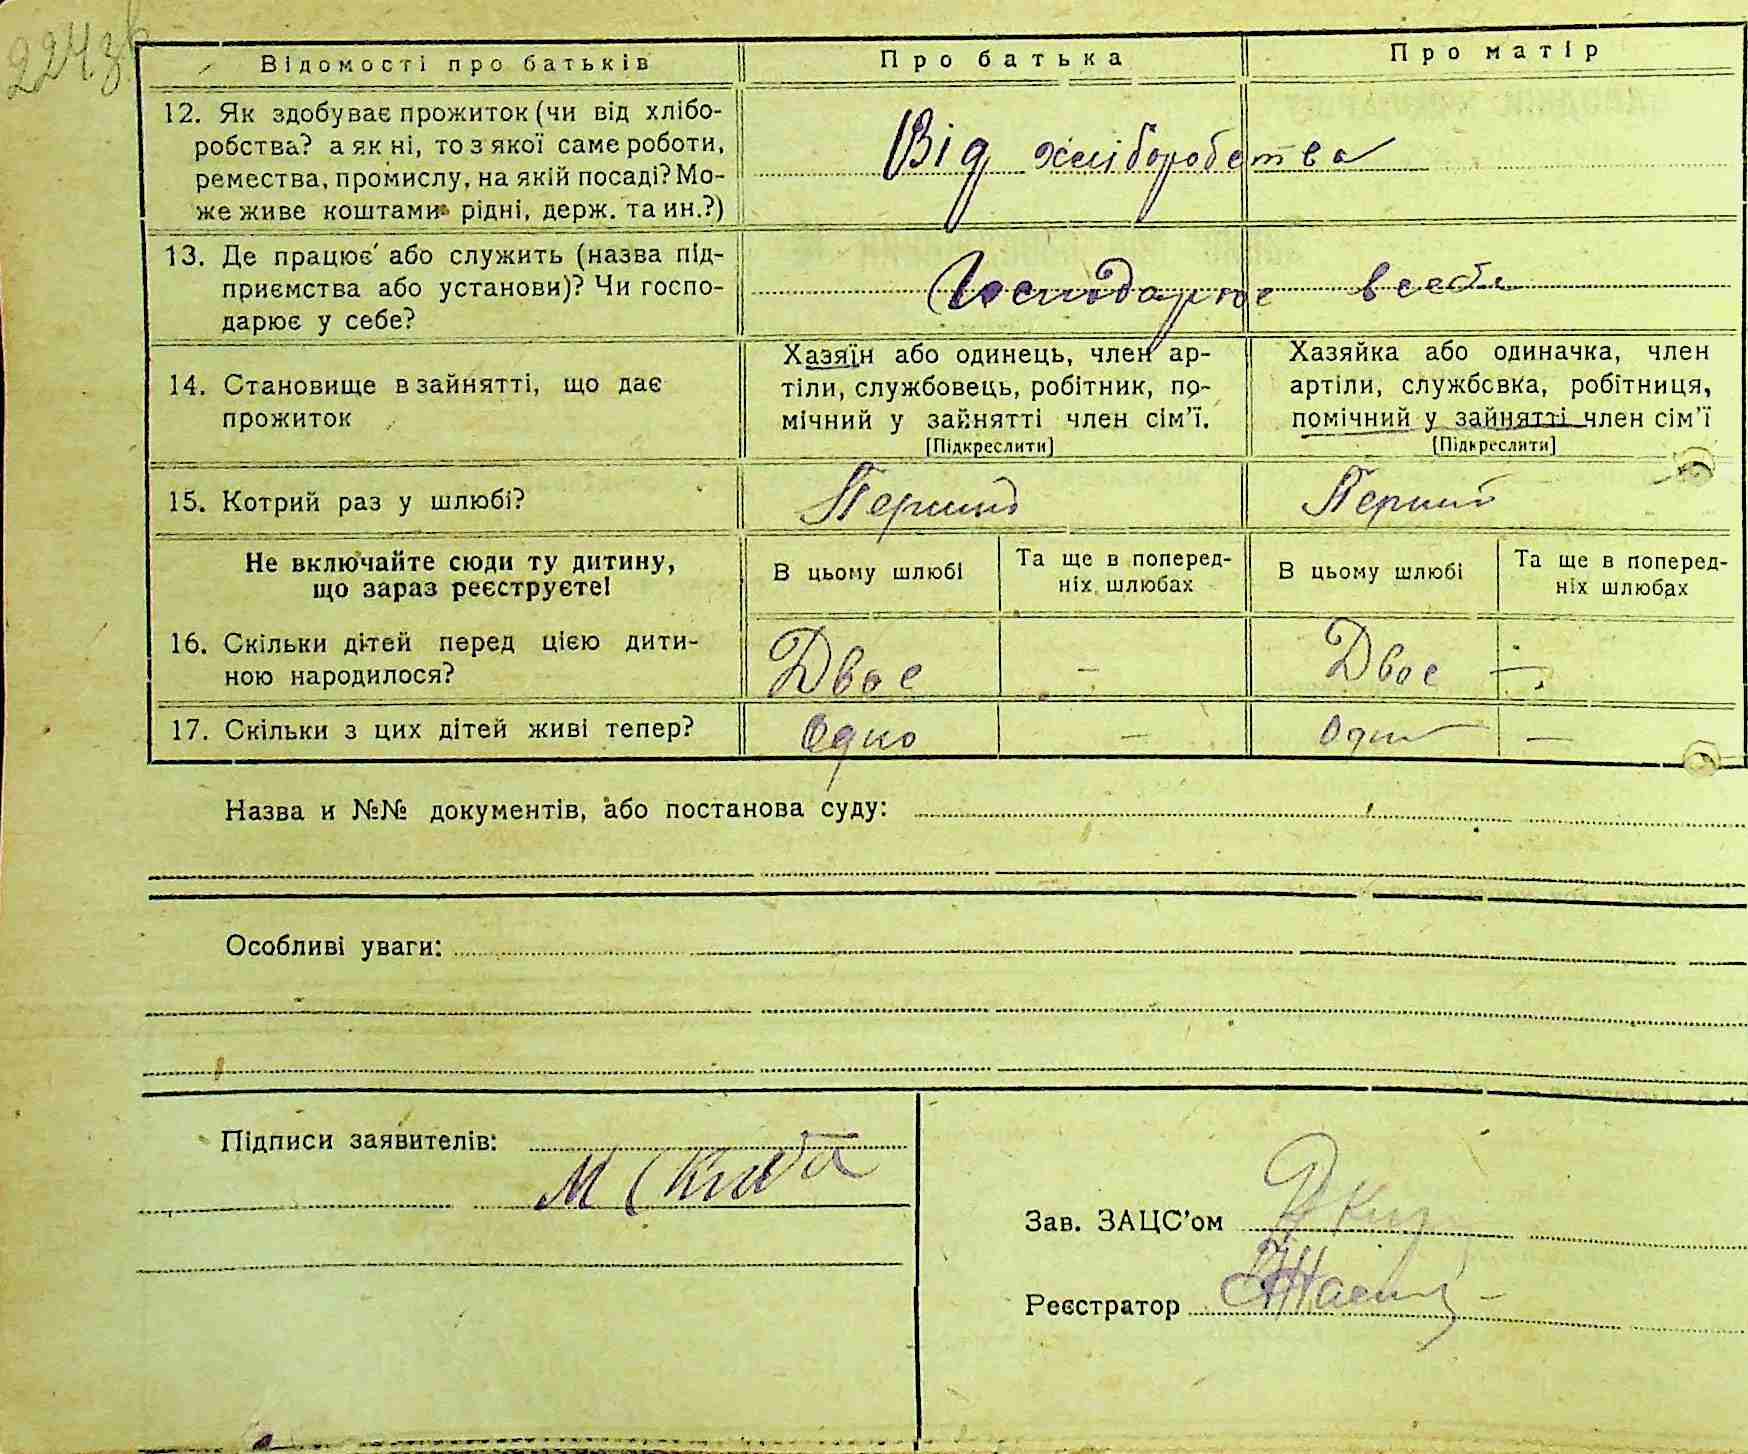 224зв
Відомості про батьків Про батька Про матір
12. Як здобуває прожиток (чи від хлібо-
робства? а як ні, то з якої саме роботи,
ремества, промислу, на якій посаді? Мо-
же живе коштами рідні, держ. та ин.?)
Від хліборобства
13. Де працює або служить (назва під-
приємства або установи)? Чи госпо-
дарює у себе?
Господарює в себе
14. Становище в зайнятті, що дає
прожиток
Хазяїн або одинець, член ар-
тіли, службовець, робітник, по-
мічний у зайнятті член сім’ї.
[Підкреслити]
Хазяйка або одиначка, член
артіли, службовка, робітниця,
помічний у зайнятті член сім’ї
[Підкреслити]
15. Котрий раз у шлюбі? Перший Перший
Не включайте сюди ту дитину,
що зараз реєструєте!
В цьому шлюбі
Та ще в поперед-
ніх шлюбах
В цьому шлюбі
Та ще в поперед-
ніх шлюбах
16. Скільки дітей перед цією дити-
ною народилося?
Двое – Двое –
17. Скільки з цих дітей живі тепер? Одно – Одно –
Назва и №№ документів, або постанова суду:
Особливі уваги:
Підписи заявителів:
М
Зав. ЗАЦС’ом
Реєстратор